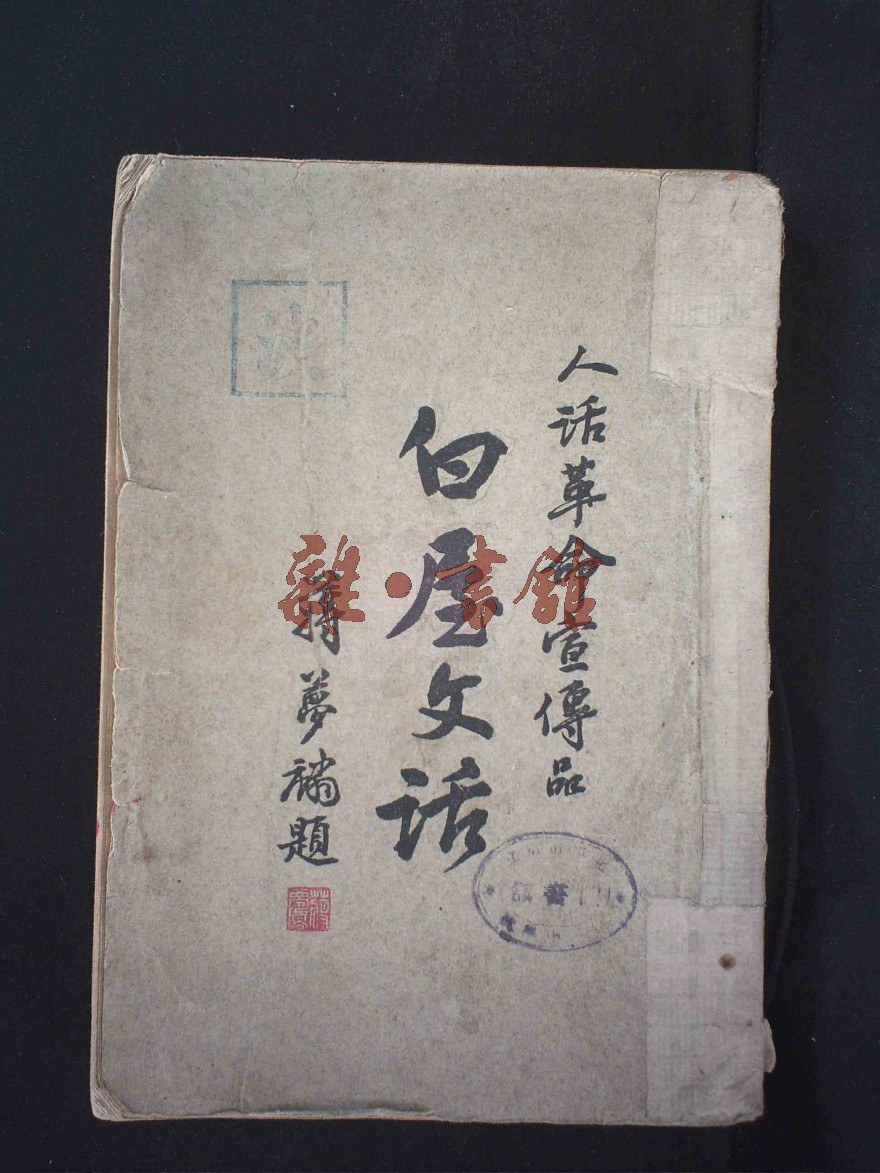 人話革命宣傳品
白屋文話
夢題
雜·書館